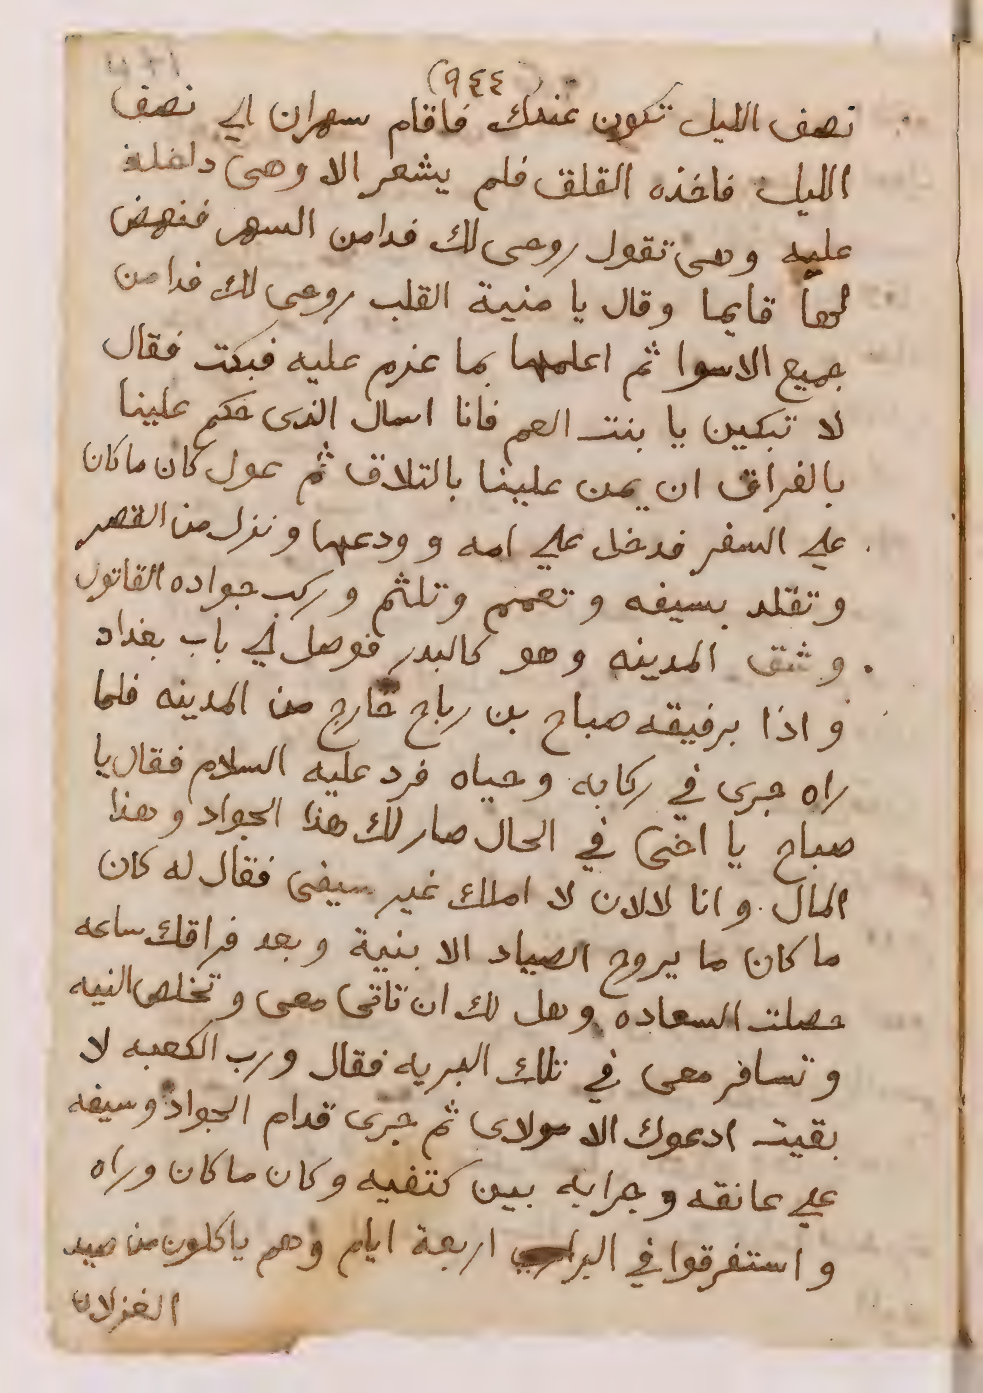 (٩٤٤)
نصف الليل تكون عندك فاقام سهران الي نصف
الليل فاخذه القلق فلم يشعر الا وهى داخلة
عليه وهى تقول روحى لك فدا من السهر فنهض
لها قايما وقال يا منية القلب روحى لك فدا من
جميع الاسوا ثم اعلمها بما عزم عليه فبكت فقال
لا تبكين يا بنت العم فانا اسال الذى حكم علينا
بالفراق ان يمن علينا بالتلاق ثم عول كان ما كان
علي السفر فدخل علي امه وودعها ونزل من القصر
وتقلد بسيفه وتعمم وتلثم وركب جواده القاتول
وشق المدينه وهو كالبدر فوصل الي باب بغداد
واذا برفيقه صباح بن رباح خارج من المدينه فلما
راه جرى في ركابه وحياه فرد عليه السلام فقال يا
صباح يا اخى في الحال صار لك هذا الجواد وهذا
المال وانا لالان لا املك غير سيفى فقال له كان
ما كان ما يروح الصياد الا بنية وبعد فراقك ساعه
حصلت السعاده وهل لك ان تاتى معى وتخلص النيه
وتسافر معى في تلك البريه فقال ورب الكعبه لا
بقيت ادعوك الا مولاى ثم جرى قدام الجواد وسيفه
علي عاتقه وجرابه بين كتفيه وكان ما كان وراه
واستفرقوا في البر اربعة ايام وهم ياكلون من صيد
الغزلان